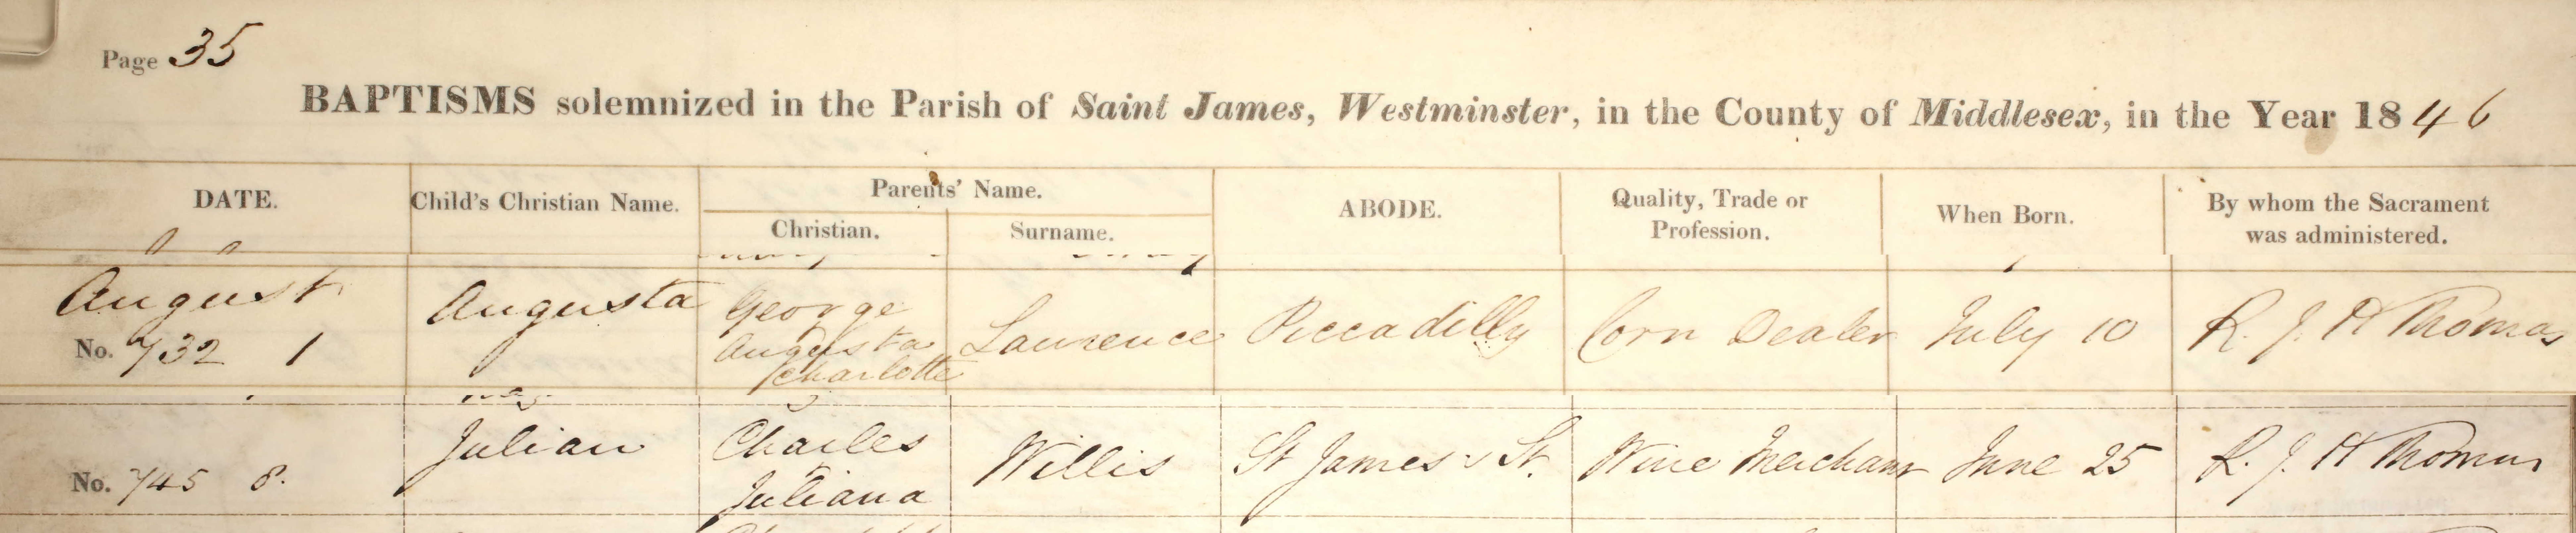 Page 35
BAPTISMS solemnized in the Parish of Saint James, Westminster, in the County of Middlesex, in the Year 1846
DATE. Child's Christian Name. Parents' Name. ABODE. Quality, Trade or Profession. When Born. By whom the Sacrament was administered.
Christian. Surname.
August Augusta George
No. 732 1 Augusta Laurence Piccadilly Corn Dealer July 10 R. J. H Thomas
Charlotte
Julian Charles
No. 745 8. Willis St James's St. Wine Merchant June 25 R. J. H Thomas
Juliana